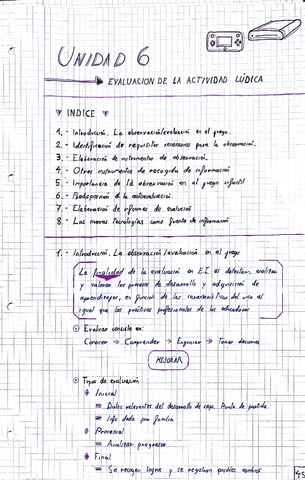 UNIDAD 6
EVALUACION DE LA ACTIVIDAD LÚDICA
INDICE
1.- Introducción. La observación/evaluación en el juego.
2.- Identificación de requisitos necesarios para la observación.
3.- Elaboración de instrumentos de observación.
4.- Otros instrumentos de recogida de información
5.- Importancia de la observación en el juego infantil
6.-
7.- Elaboración de informes de evaluación
8.- Las nuevas tecnologías como fuente de información
1.- Introducción. La observación/evaluación en el juego
La finalidad de la evaluación en E.I. es detectar, analizar
y valorar los procesos de desarrollo y adquisición de
aprendizajes, en función de las características del niño al
igual que las prácticas profesionales de los educadores
Evaluar consiste en:
Conocer → Comprender → Enjuiciar → Tomar decisiones
MEJORAR
Tipos de evaluación
Inicial
Datos relevantes del desarrollo de capa. Punto de partida.
Info dada por familia
Procesual
Analizar progresos
Final
Se recogen logros y se registran posibles cambios